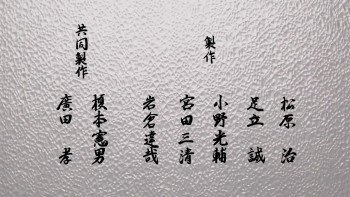 製作
松原　治
足立　誠
小野光輔
宮田三清
岩倉達哉
共同製作
榎本憲男
廣田　孝